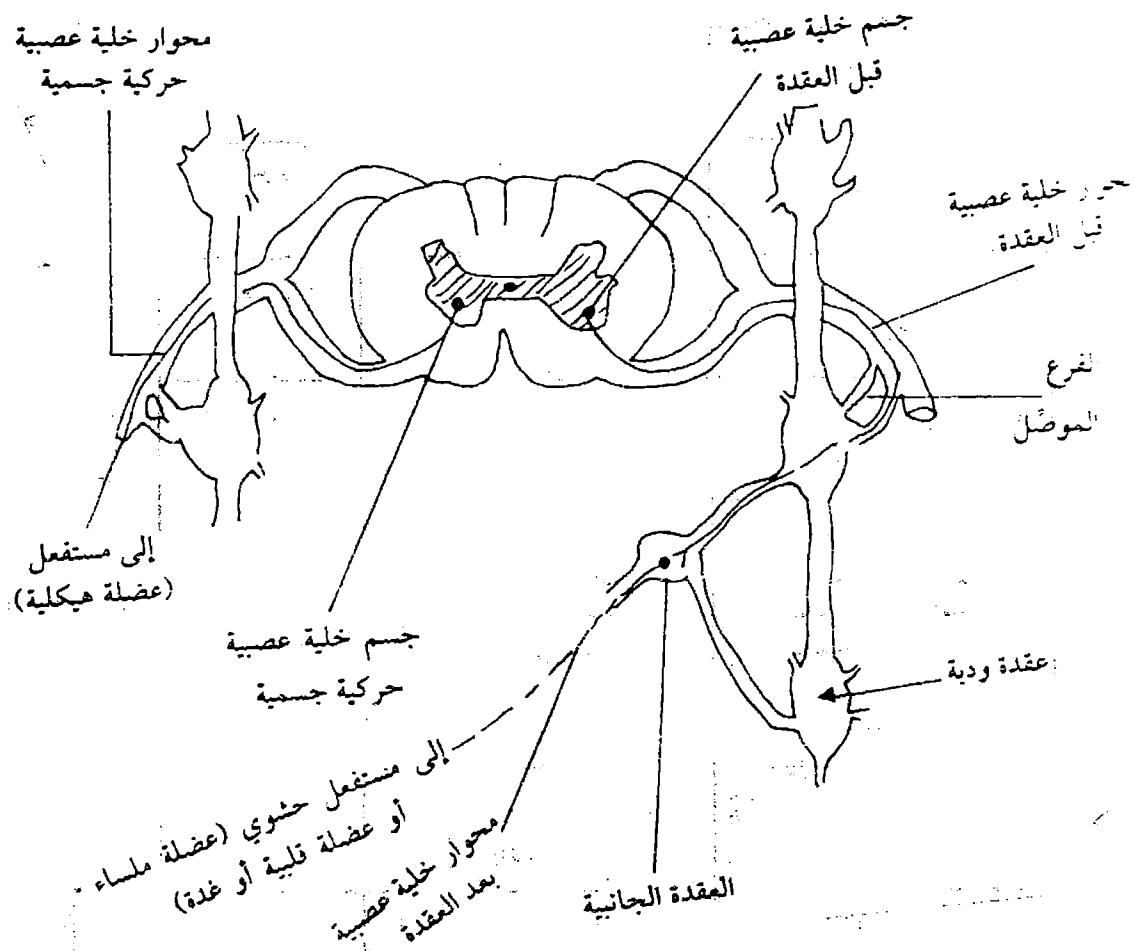 محوار خلية عصبية
حركية جسمية
جسم خلية عصبية
قبل العقدة
خلية عصبية
قبل العقدة
الموصِّل
إلى مستفعل
(عضلة هيكلية)
جسم خلية عصبية
حركية جسمية
عقدة ودية
إلى مستفعل حشوي (عضلة ملساء
أو عضلة قلبية أو غدة)
محوار خلية عصبية
بعد العقدة
العقدة الجانبية